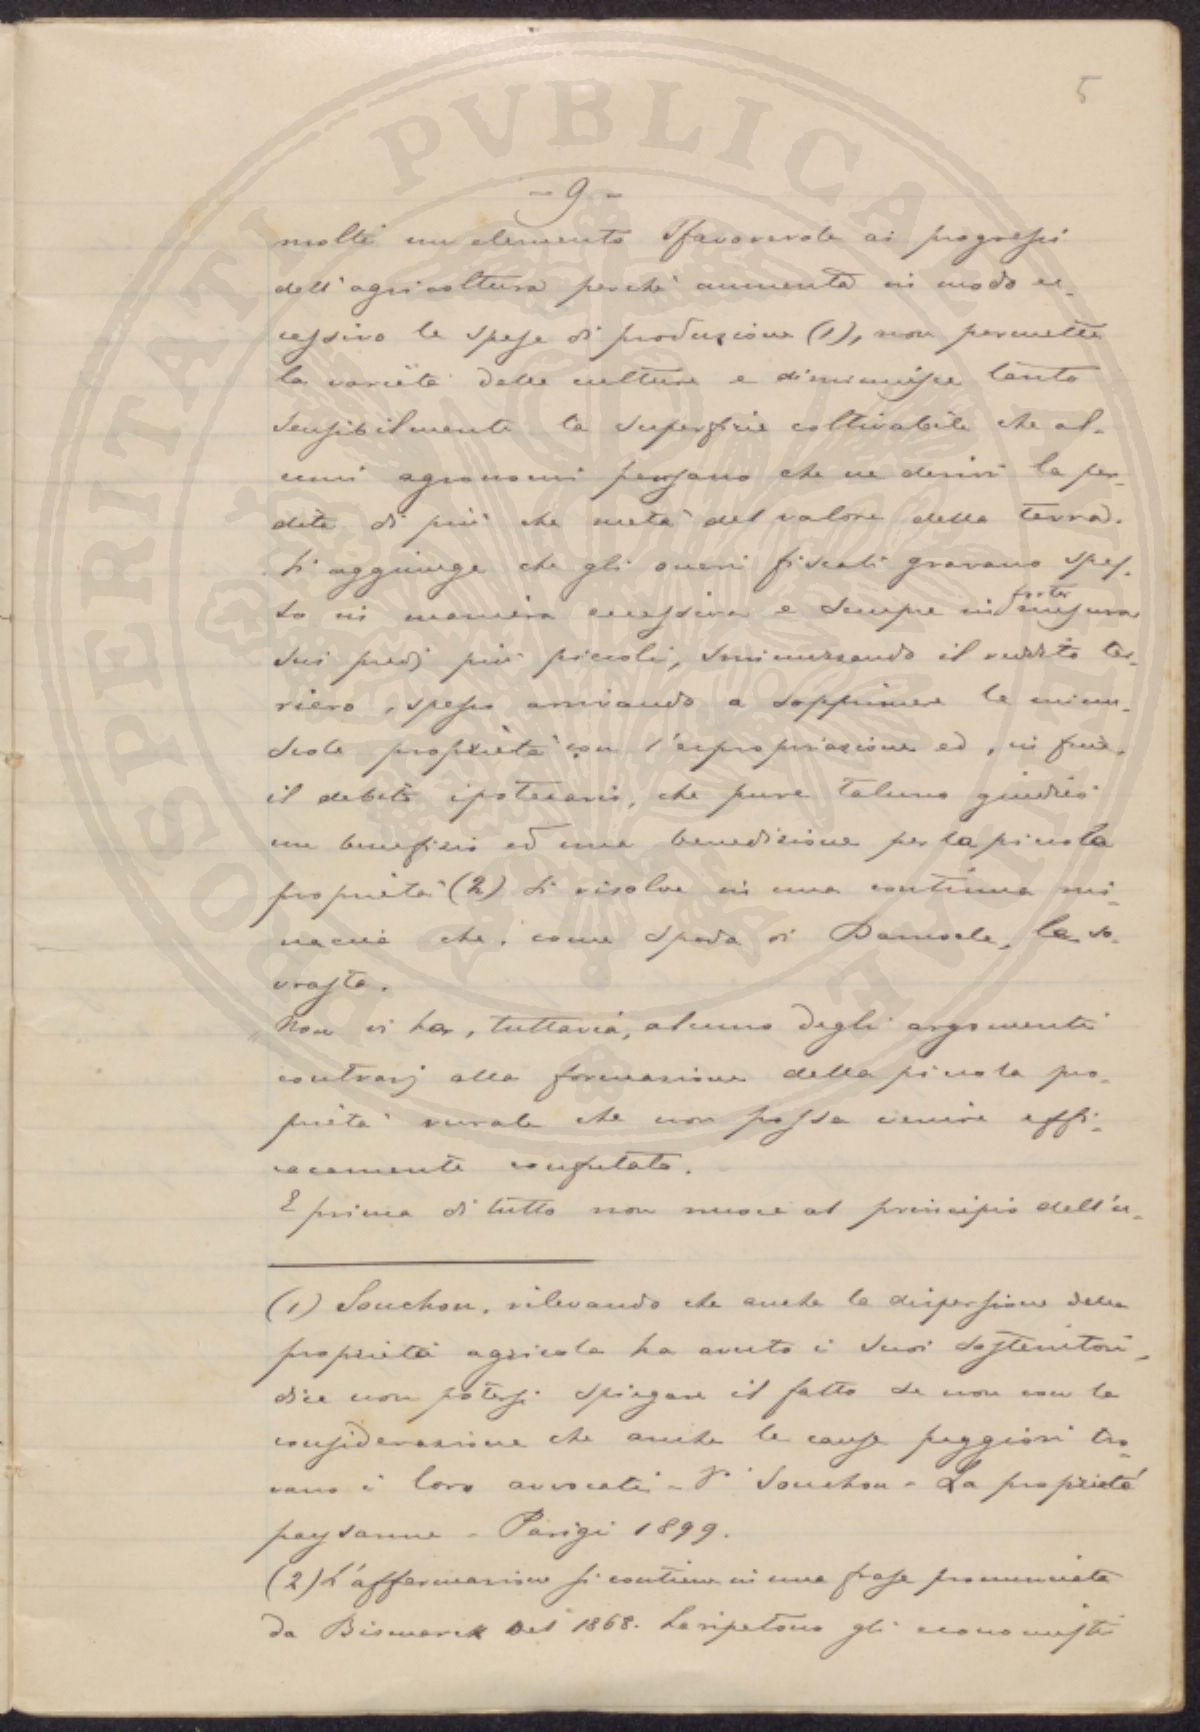 5
- 9 -
molti un elemento sfavorevole ai progressi
dell'agricoltura perchè aumenta in modo ec-
cessivo le spese di produzione (1), non permette
la varietà delle culture e diminuisce tanto
sensibilmente la superficie coltivabile che al-
cuni agronomi pensano che ne derivi la per-
dita di più che metà del valore della terra.
Si aggiunge che gli oneri fiscali gravano spes-
so in maniera eccessiva e sempre in forte misura
sui predj più piccoli, sminuzzando il reddito ter-
riero, spesso arrivando a sopprimere le minu-
scole proprietà con l'espropriazione ed, in fine,
il debito ipotecario, che pure taluno giudicò
un benefizio ed una benedizione per la piccola
proprietà (2) si risolve in una continua mi-
naccia che, come spada di Damocle, la so-
vrasta.
Non vi ha, tuttavia, alcuno degli argomenti
contrarj alla formazione della piccola pro-
prietà rurale che non possa venire effi-
cacemente confutato.
E prima di tutto non nuoce al principio dell'u-
(1) Souchon, rilevando che anche la dispersione della
proprietà agricola ha avuto i suoi sostenitori,
dice non potersi spiegare il fatto se non con la
considerazione che anche le cause peggiori tro-
vano i loro avvocati - V. Souchon - La propriété
paysanne - Parigi 1899.
(2) L'affermazione si contiene in una frase pronunciata
da Bismarck nel 1868. La ripetono gli economisti
PROSPERITATI PVBLICAE